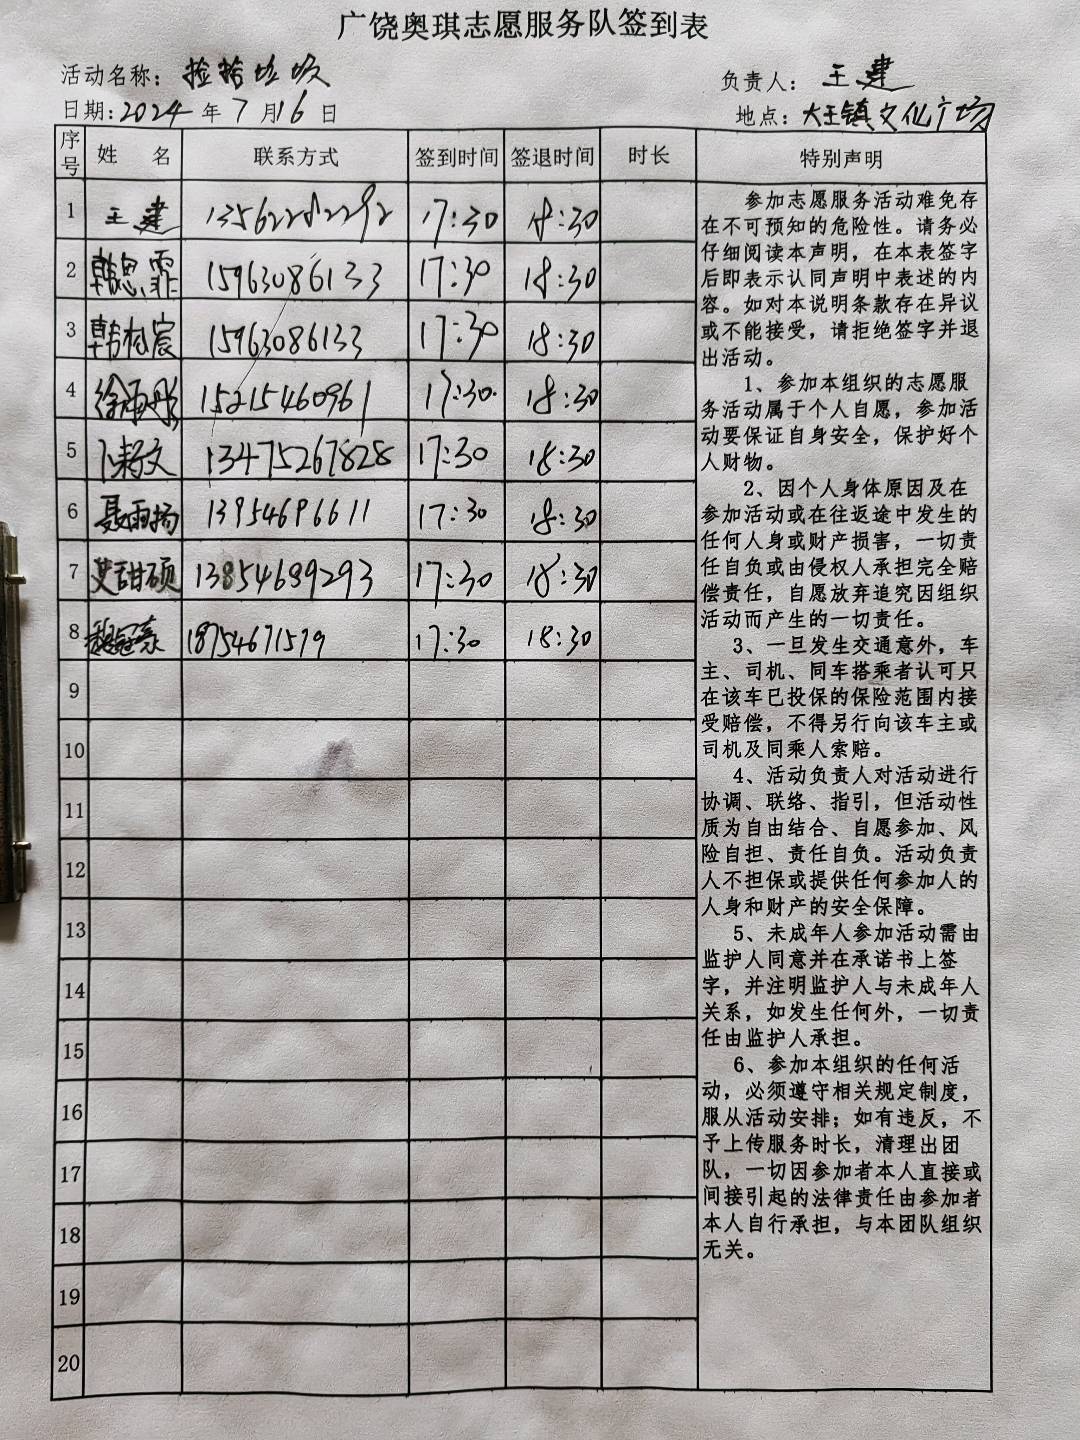 广饶奥琪志愿服务队签到表
活动名称：捡拾垃圾 负责人：王建
日期：2024年7月16日 地点：大王镇文化广场
序号 姓 名 联系方式 签到时间 签退时间 时长 特别声明
1 王建 13562282292 17:30 18:30
2 韩思霏 15963086133 17:30 18:30
3 韩柏宸 15963086133 17:30 18:30
4 徐雨彤 15215460961 17:30 18:30
5 陈文 13475267828 17:30 18:30
6 聂雨扬 13954696611 17:30 18:30
7 艾甜硕 13854689293 17:30 18:30
8 18754671579 17:30 18:30
9
10
11
12
13
14
15
16
17
18
19
20
参加志愿服务活动难免存
在不可预知的危险性。请务必
仔细阅读本声明，在本表签字
后即表示认同声明中表述的内
容。如对本说明条款存在异议
或不能接受，请拒绝签字并退
出活动。
1、参加本组织的志愿服
务活动属于个人自愿，参加活
动要保证自身安全，保护好个
人财物。
2、因个人身体原因及在
参加活动或在往返途中发生的
任何人身或财产损害，一切责
任自负或由侵权人承担完全赔
偿责任，自愿放弃追究因组织
活动而产生的一切责任。
3、一旦发生交通意外，车
主、司机、同车搭乘者认可只
在该车已投保的保险范围内接
受赔偿，不得另行向该车主或
司机及同乘人索赔。
4、活动负责人对活动进行
协调、联络、指引，但活动性
质为自由结合、自愿参加、风
险自担、责任自负。活动负责
人不担保或提供任何参加人的
人身和财产的安全保障。
5、未成年人参加活动需由
监护人同意并在承诺书上签
字，并注明监护人与未成年人
关系，如发生任何外，一切责
任由监护人承担。
6、参加本组织的任何活
动，必须遵守相关规定制度，
服从活动安排；如有违反，不
予上传服务时长，清理出团
队，一切因参加者本人直接或
间接引起的法律责任由参加者
本人自行承担，与本团队组织
无关。